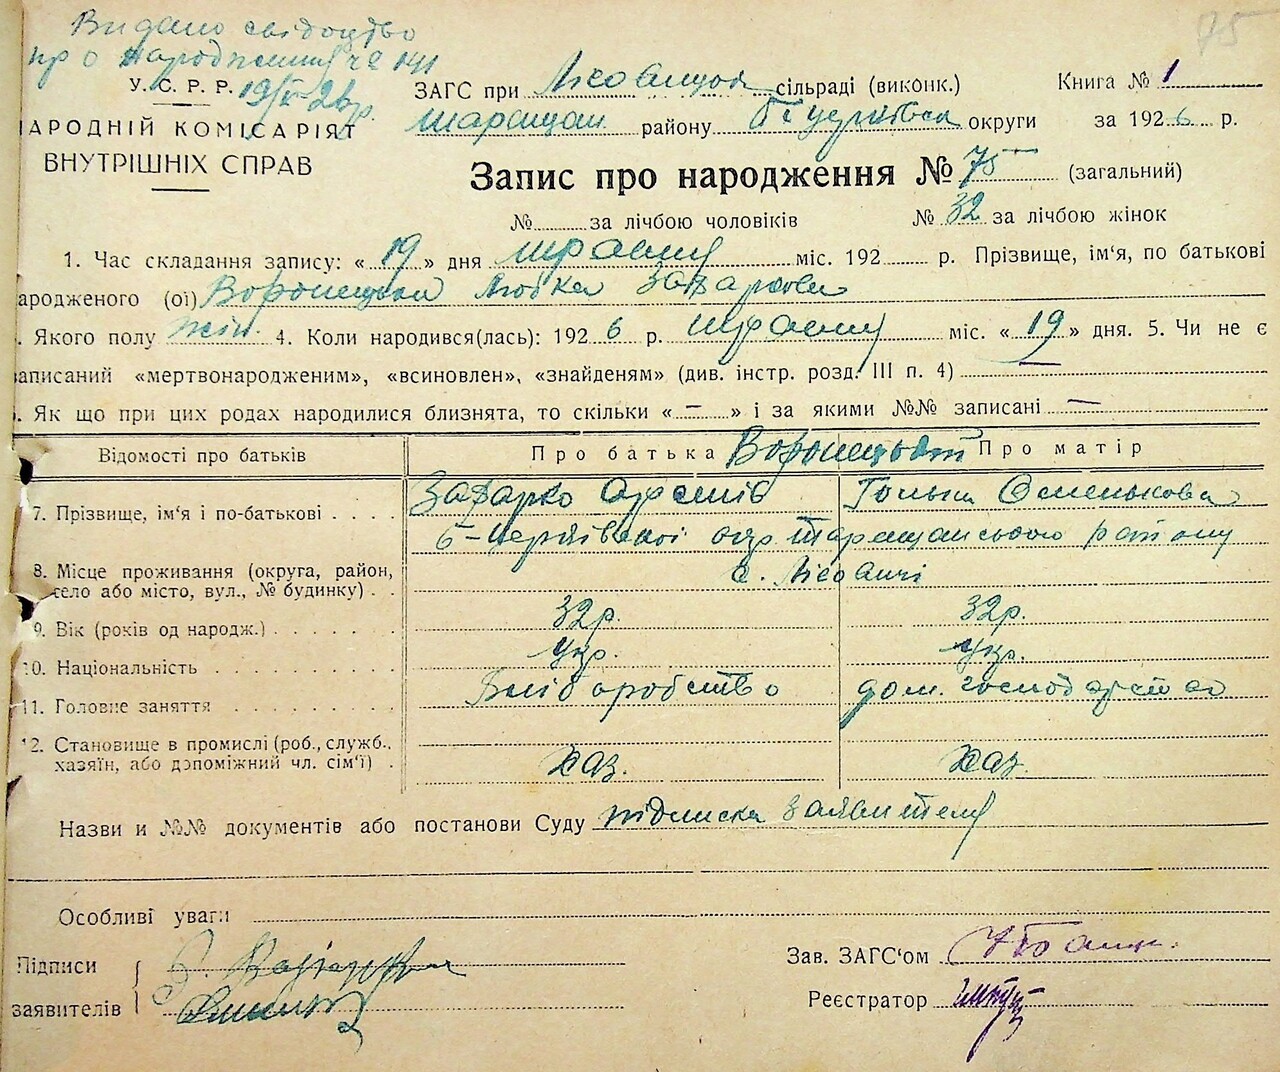 75
Видано свідоцтво
про народження за № 141
19/V-26р.
У. С. Р. Р.
НАРОДНІЙ КОМІСАРІЯТ
ВНУТРІШНІХ СПРАВ
ЗАГС при Лісовицькій сільраді (виконк.) Книга № 1
Таращан. району Б Церківськ округи за 1926 р.
Запис про народження № 75 (загальний)
№ за лічбою чоловіків № 32 за лічбою жінок
1. Час складання запису: «19» дня травня міс. 192 р. Прізвище, ім'я, по батькові
ародженого (ої) Воронецька Любка Захаркова
. Якого полу жін. 4. Коли народився(лась): 1926 р. травня міс. «19» дня. 5. Чи не є
записаний «мертвонародженим», «всиновлен», «знайденям» (див. інстр. розд. III п. 4) —
. Як що при цих родах народилися близнята, то скільки «—» і за якими №№ записані —
Відомості про батьків Про батька Воронецькі Про матір
7. Прізвище, ім'я і по-батькові Захарко Одрепів Ганна
Б-Церківської окр. Таращанського району
8. Місце проживання (округа, район, с. Лісовичі
село або місто, вул., № будинку)
9. Вік (років од народж.) 32р. 32р.
10. Національність Укр. Укр.
11. Головне заняття Хліборобство дом. господарство
12. Становище в промислі (роб., служб.,
хазяїн, або допоміжний чл. сім'ї) хаз. хаз.
Назви и №№ документів або постанови Суду підписка заявителя
Особливі уваги
Підписи
заявителів
Зав. ЗАГС'ом
Реєстратор